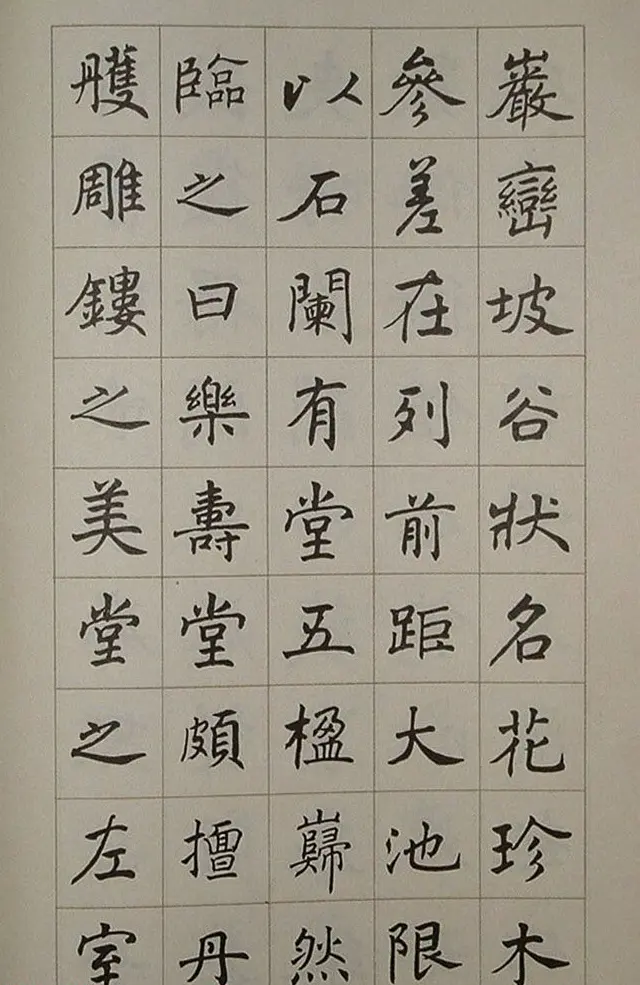 巖巒坡谷狀名花珍木
參差在列前距大池限
以石闌有堂五楹巋然
臨之曰樂壽堂頗擅丹
雘雕鏤之美堂之左室